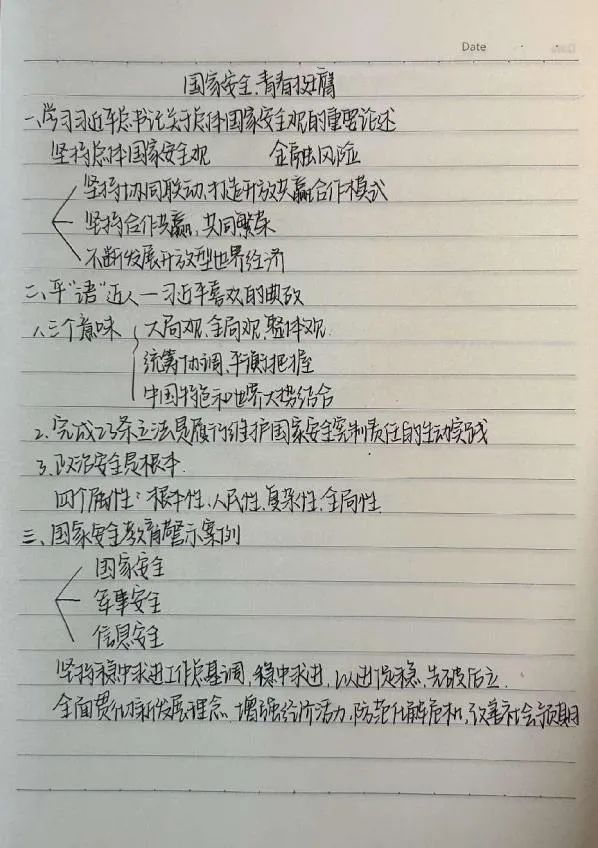 Date
国家安全,青春挺膺
一、学习习近平总书记关于总体国家安全观的重要论述
坚持总体国家安全观 金融风险
坚持协同联动,打造开放共赢合作模式
坚持合作共赢,共同繁荣
不断发展开放型世界经济
二、平“语”近人—习近平喜欢的典故
1.三个意味 大局观,全局观,整体观.
统筹协调,平衡把握
中国特色和世界大势结合
2.完成23条立法是履行维护国家安全宪制责任的生动实践
3.政治安全是根本.
四个属性:根本性,人民性,复杂性,全局性.
三、国家安全教育警示案例
国家安全
军事安全
信息安全
坚持稳中求进工作总基调,稳中求进,以进促稳,先破后立.
全面贯彻新发展理念,增强经济活力,防范化解危机,改善社会预期